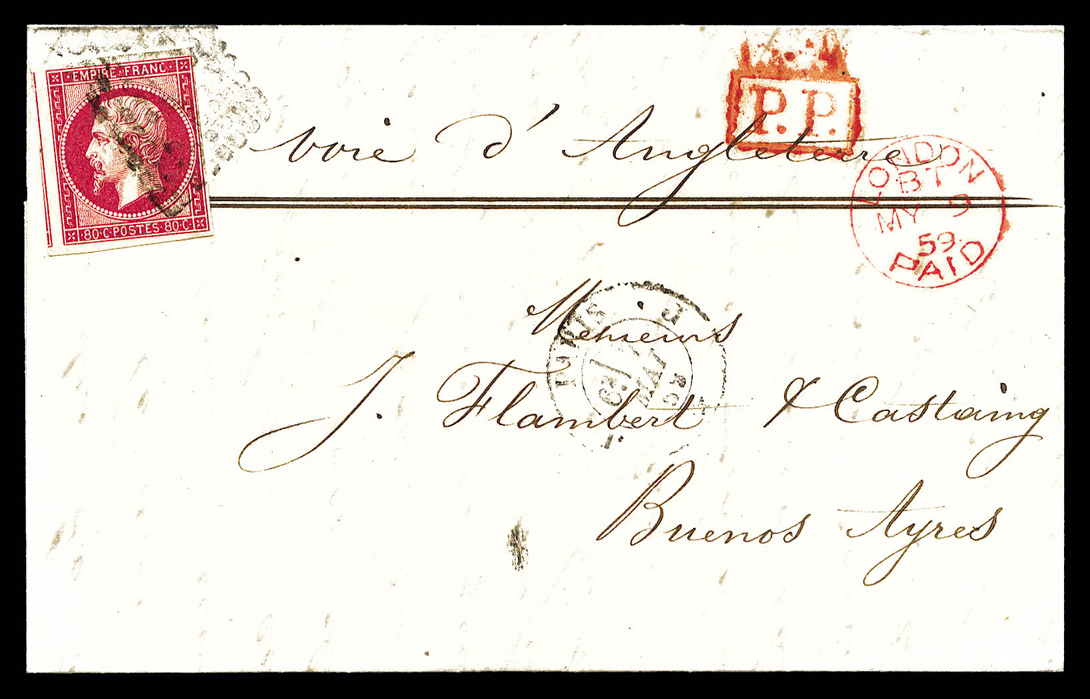 EMPIRE FRANC.
80·C·POSTES·80·C·
P.P.
voie d'Angleterre
LONDON
BT
MY 9
59
PAID
PARIS
MAI
Messieurs
J. Flambert & Castaing
Buenos Ayres